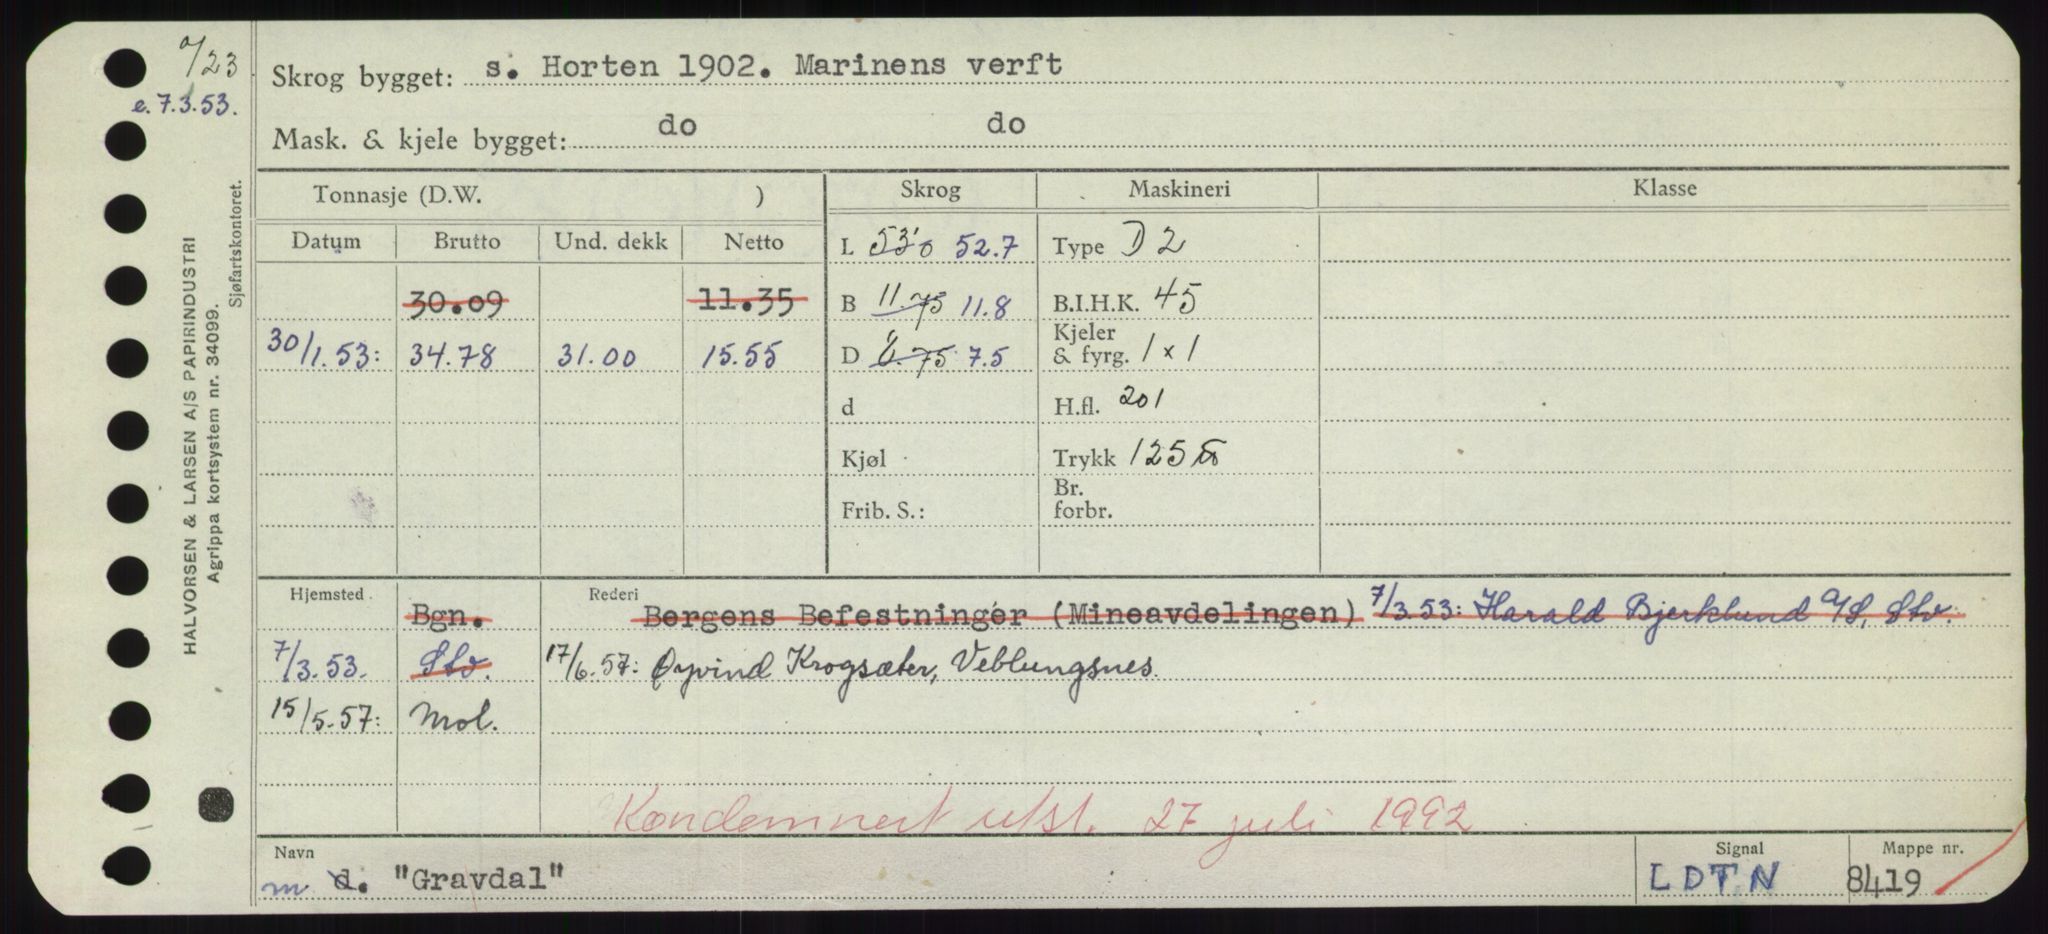 %23
e. 7.3.53.
Skrog bygget: s. Horten 1902. Marinens verft
Mask. & kjele bygget: do do
HALVORSEN & LARSEN A/S PAPIRINDUSTRI
Agrippa kortsystem nr. 34099.
Sjøfartskontoret.
Tonnasje (D.W. ) Skrog Maskineri Klasse
Datum Brutto Und. dekk Netto L 53'0 52.7 Type D 2
30.09 11.35 B 11.75 11.8 B.I.H.K. 45
30/1.53: 34.78 31.00 15.55 D 6.75 7.5 Kjeler & fyrg. 1 x 1
d H.fl. 201
Kjøl Trykk 125
Frib. S.: Br. forbr.
Hjemsted Rederi
Bgn. Bergens Befestninger (Mineavdelingen) 7/3.53: Harald Bjerklund A/S, Stv.
7/3.53. Stv. 17/6.57: Øyvind Krogsæter, Veblungsnes.
15/5.57: Mol.
Kondemnert utst. 27 juli 1992
Navn Signal Mappe nr.
m d. "Gravdal" LDTN 8419